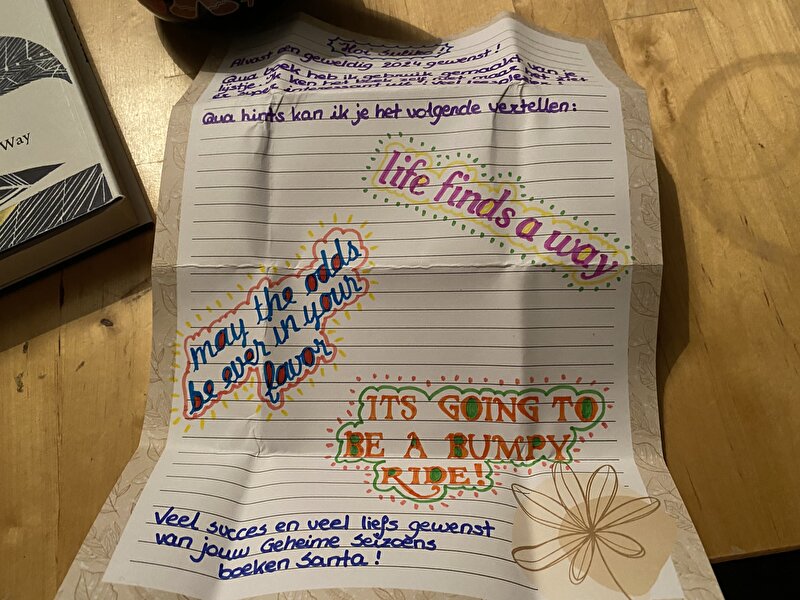 Alvast een geweldig 2024 gewenst!
Qua boek heb ik gebruik gemaakt van je
lijstje. Ik ken het zelf
super interessant
Qua hints kan ik je het volgende vertellen:
life finds a way
Way
may the odds
be ever in your
favor
ITS GOING TO
BE A BUMPY
RIDE!
Veel succes en veel liefs gewenst
van jouw Geheime Seizoens
boeken Santa!